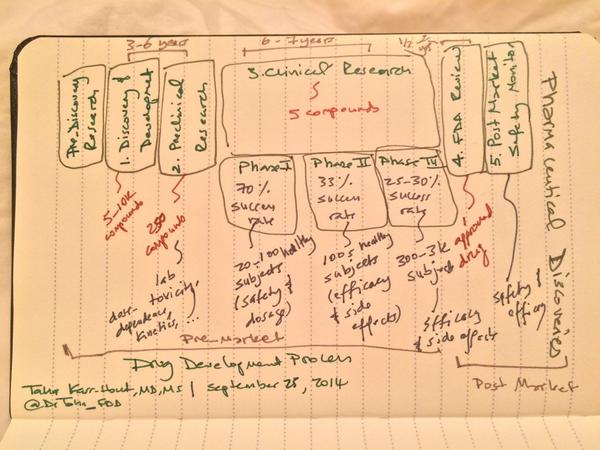 3-6 years
6-7 years
1/2
Pre-Discovery
Research
1. Discovery &
Development
2. Preclinical
Research
3. Clinical Research
5 compounds
4. FDA Review
5. Post Market
Safety Monitor
Pharmaceutical Discoveries
5-10K
compounds
250
compounds
lab
toxicity,
dose-
dependence,
kinetics, ...
Phase I
70%
success
rate
20-100 healthy
subjects
(safety &
dosage)
Phase II
33%
success
rate
100s healthy
subjects
(efficacy
& side
effects)
Phase III
25-30%
success
rate
300-3K
subjects
efficacy
& side effects
1 approved
drug
safety
efficacy
Pre-Market
Post Market
Drug Development Process
Taha Kass-Hout, MD, MS | September 28, 2014
@DrTaha_FDA